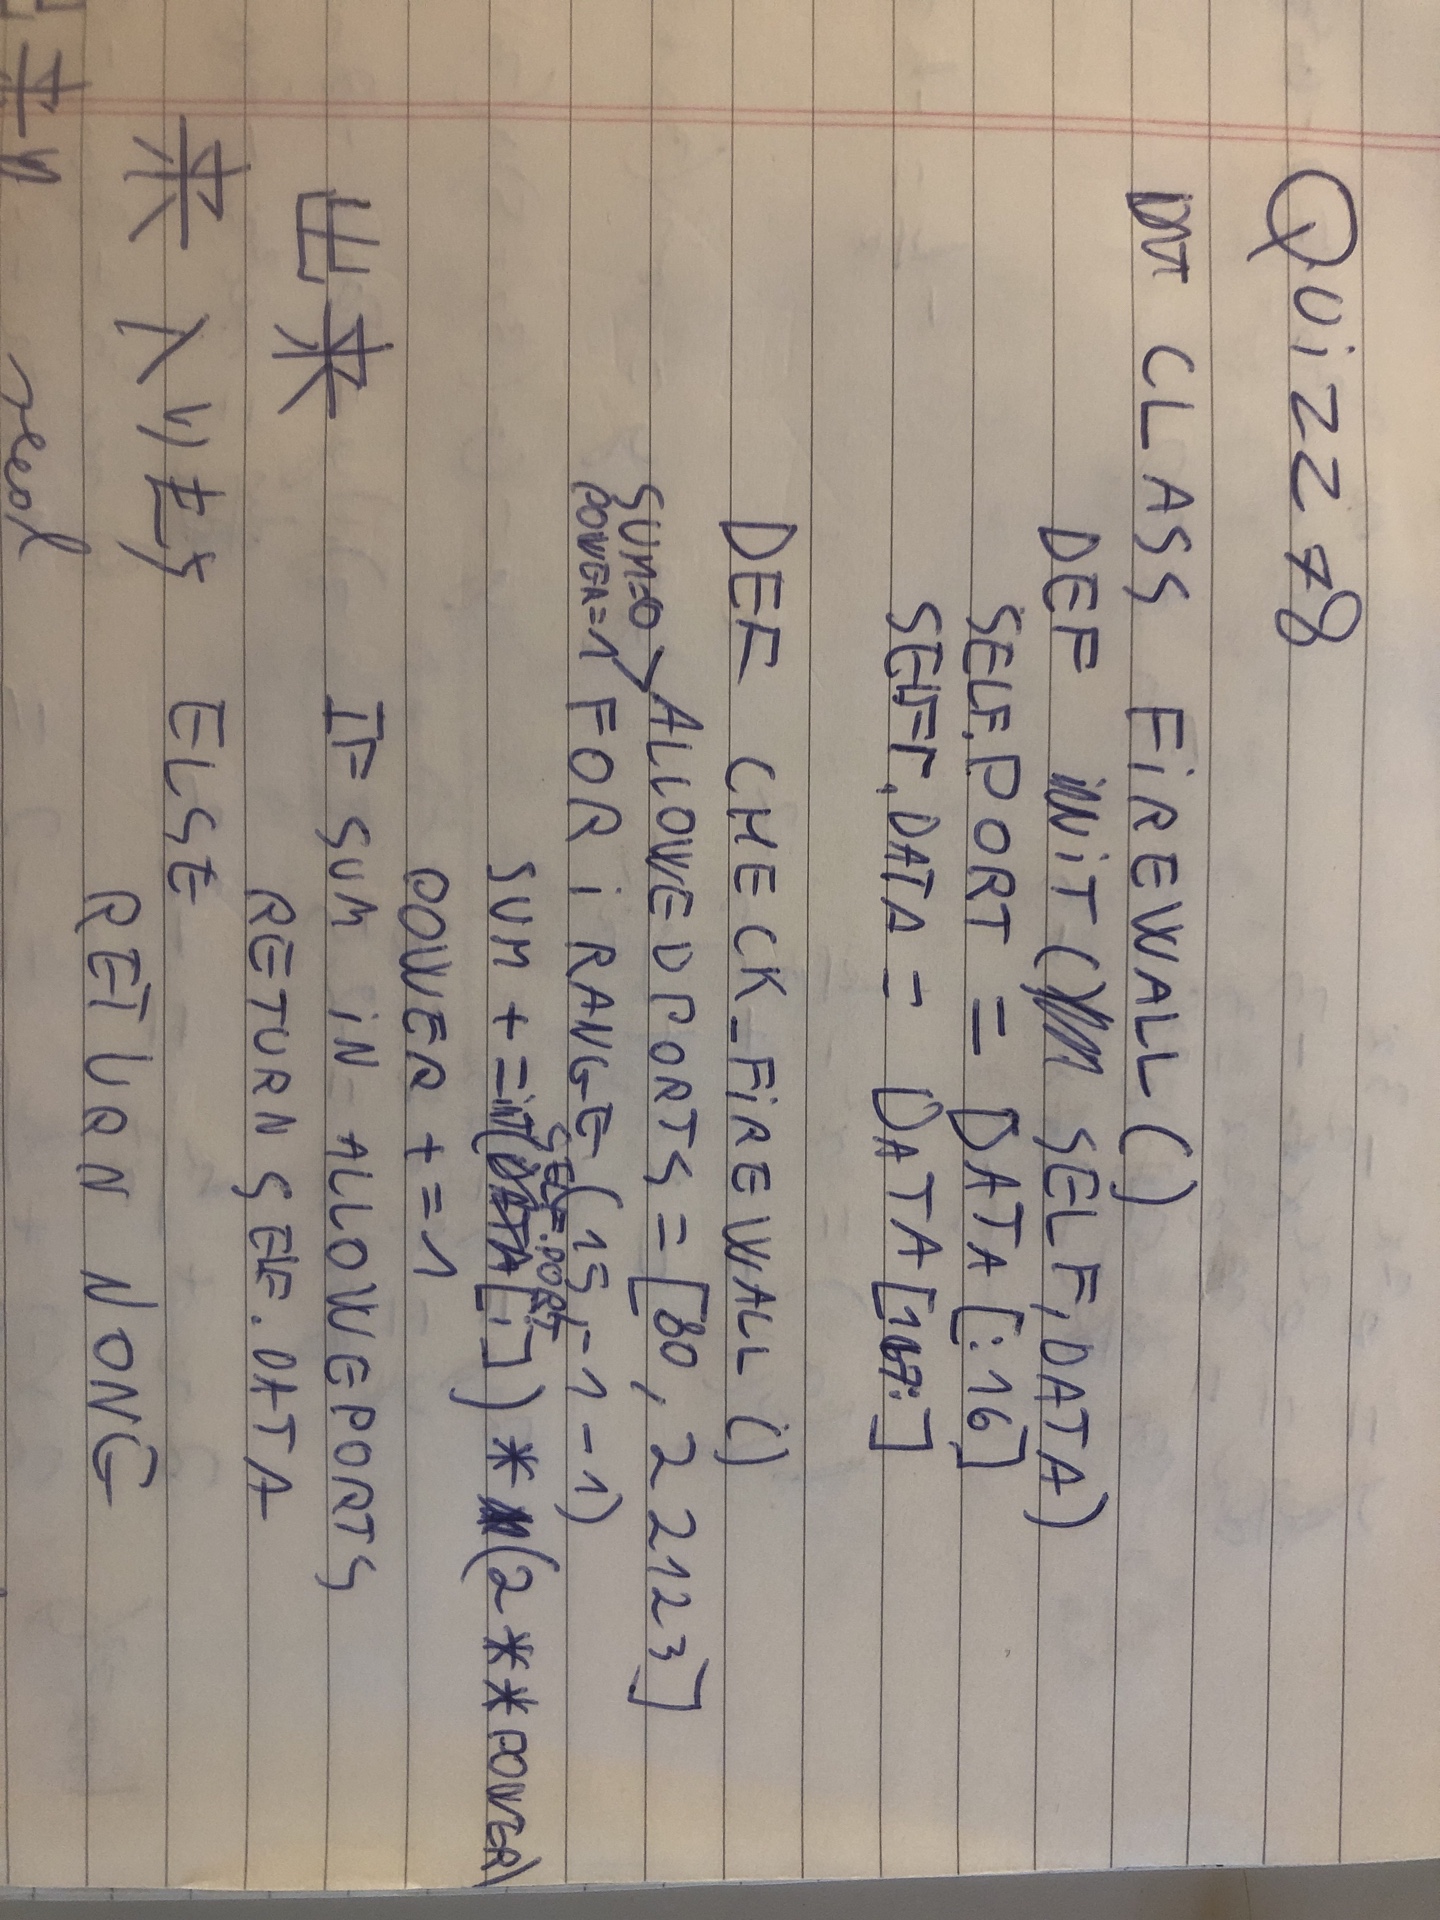 QUIZZ 78
CLASS FIREWALL()
DEF INIT( SELF, DATA)
SELF.PORT = DATA[:16]
SELF.DATA = DATA[16:]
DEF CHECK_FIREWALL()
SUM=0 ALLOWEDPORTS = [80, 22123]
POWER=1 FOR i RANGE(15,-1-1)
SELF.PORT
SUM += INT([i]) * (2**POWER)
POWER += 1
出来 IF SUM IN ALLOWEPORTS
RETURN SELF.DATA
来 ELSE
RETURN NONE